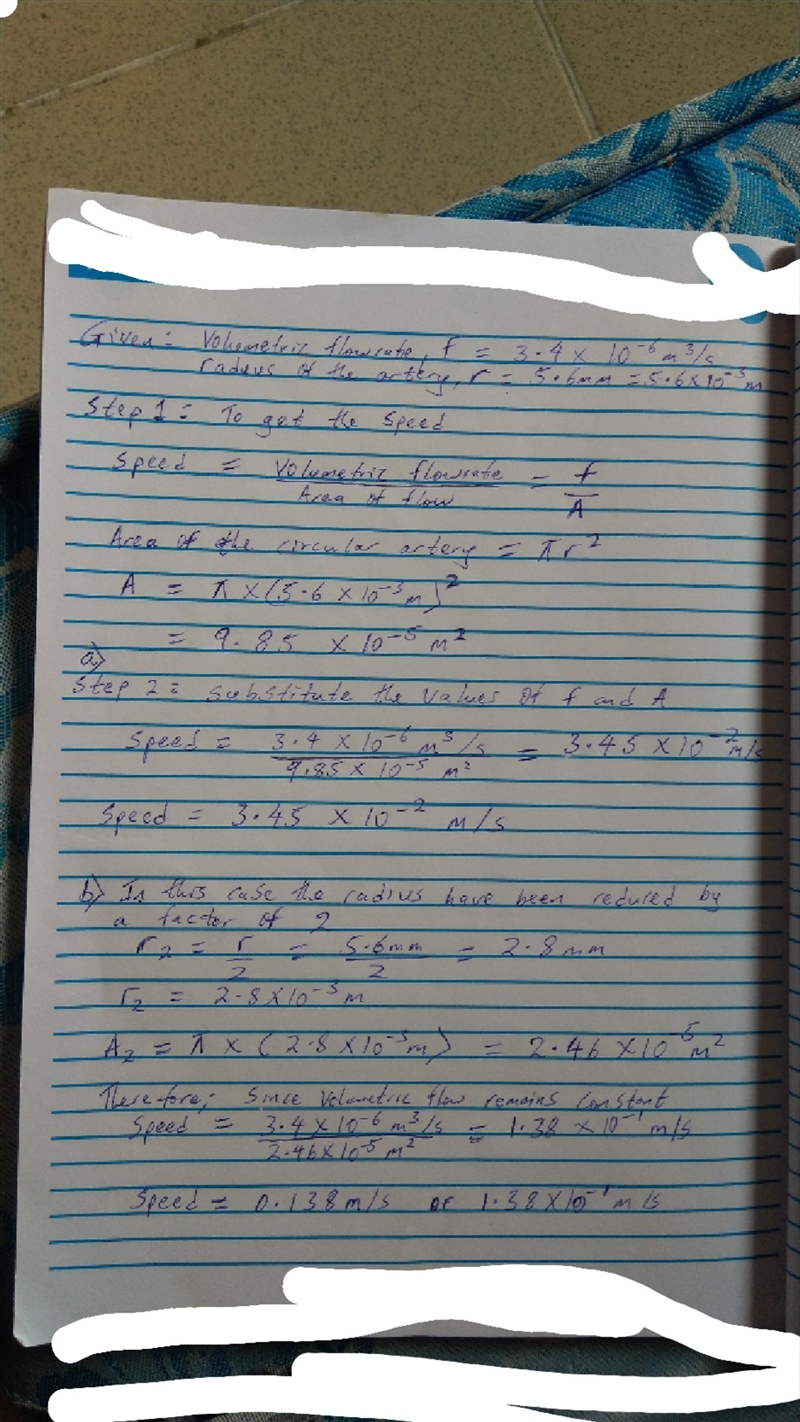 Given: Volumetric flowrate, f = 3.4 × 10⁻⁶ m³/s
radius of the artery, r = 5.6mm = 5.6×10⁻³ m
Step 1: To get the Speed
Speed = Volumetric flowrate / Area of flow = f / A
Area of the circular artery = πr²
A = π × (5.6 × 10⁻³ m)²
= 9.85 × 10⁻⁵ m²
a)
Step 2: Substitute the values of f and A
Speed = 3.4 × 10⁻⁶ m³/s / 9.85 × 10⁻⁵ m² = 3.45 × 10⁻² m/s
Speed = 3.45 × 10⁻² m/s
b) In this case the radius have been reduced by
a factor of 2
r₂ = r / 2 = 5.6mm / 2 = 2.8mm
r₂ = 2.8×10⁻³ m
A₂ = π × (2.8×10⁻³m) = 2.46 ×10⁻⁵ m²
Therefore; Since Volumetric flow remains constant
Speed = 3.4 × 10⁻⁶ m³/s / 2.46×10⁻⁵ m² = 1.38 × 10⁻¹ m/s
Speed = 0.138m/s or 1.38×10⁻¹ m/s